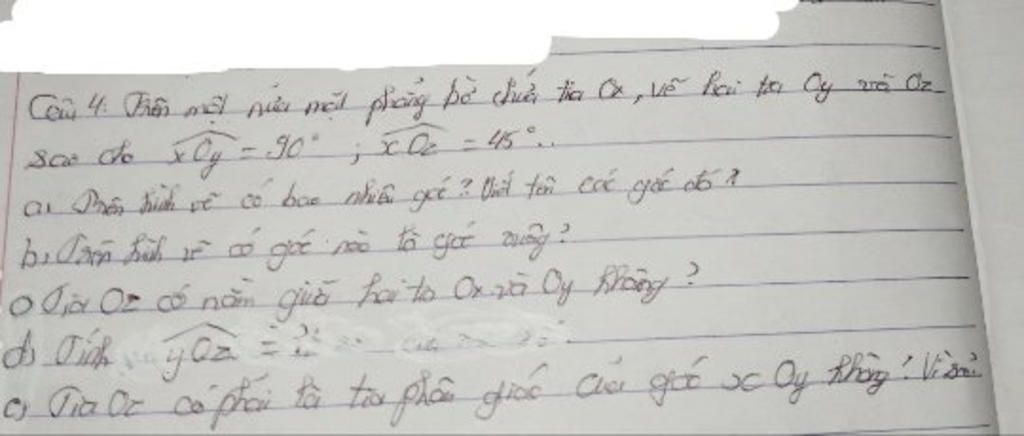 Câu 4. Trên một nửa mặt phẳng bờ chứa tia Ox, vẽ hai tia Oy và Oz
sao cho xOy = 90° ; xOz = 45°.
a, Trên hình vẽ có bao nhiêu góc? Viết tên các góc đó?
b, Trên hình vẽ có góc nào là góc vuông?
c) Tia Oz có nằm giữa hai tia Ox và Oy không?
d) Tính yOz = ?
e) Tia Oz có phải là tia phân giác của góc xOy không? Vì sao?